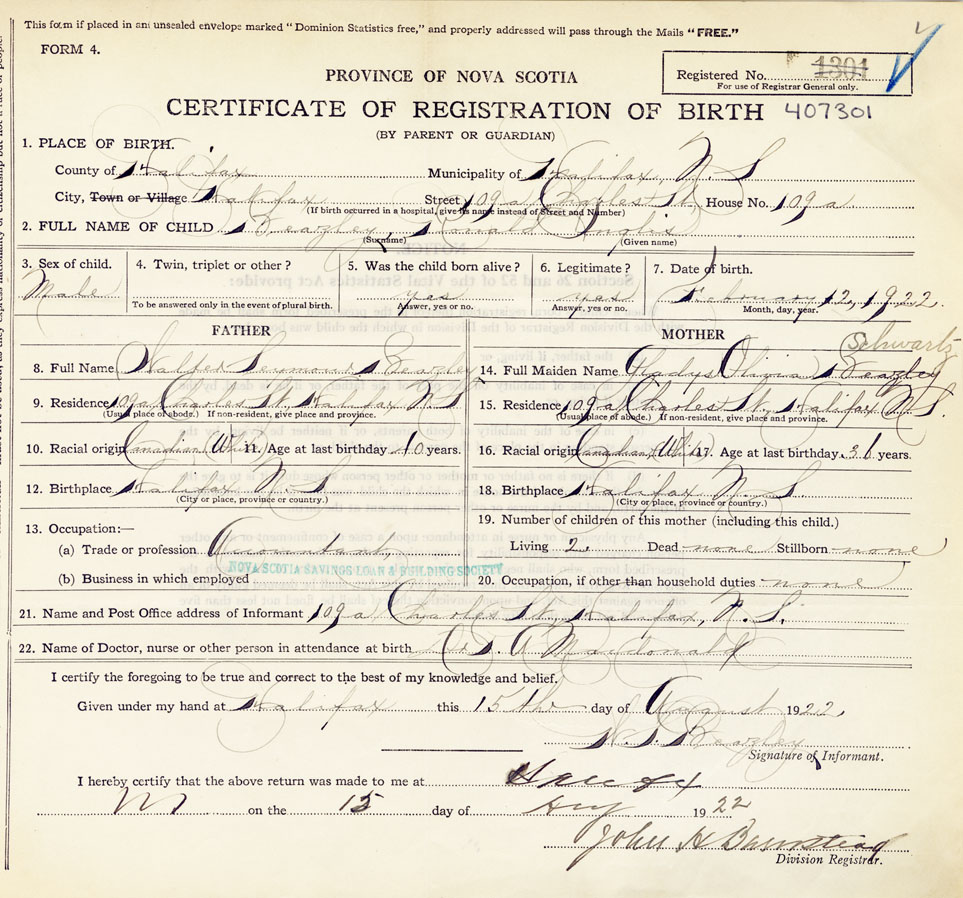 This form if placed in an unsealed envelope marked "Dominion Statistics free," and properly addressed will pass through the Mails "FREE."
FORM 4.
PROVINCE OF NOVA SCOTIA
Registered No. 1301
For use of Registrar General only.
CERTIFICATE OF REGISTRATION OF BIRTH 407301
(BY PARENT OR GUARDIAN)
1. PLACE OF BIRTH.
County of Halifax Municipality of Halifax, N. S
City, Town or Village Halifax Street 109a Charles St, House No. 109a
(If birth occurred in a hospital, give its name instead of Street and Number)
2. FULL NAME OF CHILD Beazley, Ronald Inglis
(Surname) (Given name)
3. Sex of child. 4. Twin, triplet or other? 5. Was the child born alive? 6. Legitimate? 7. Date of birth.
Male yes yes February 12, 1922.
To be answered only in the event of plural birth. Answer, yes or no. Answer, yes or no. Month, day, year.
FATHER MOTHER
Schwartz
8. Full Name Walter Seymour Beazley 14. Full Maiden Name Gladys Olivia Beazley
9. Residence 109a Charles St. Halifax N S 15. Residence 109a Charles St., Halifax N. S.
(Usual place of abode.) If non-resident, give place and province. (Usual place of abode.) If non-resident, give place and province.
10. Racial origin Canadian (White) 11. Age at last birthday 40 years. 16. Racial origin Canadian (White) 17. Age at last birthday 36 years.
12. Birthplace Halifax N. S 18. Birthplace Halifax N. S
(City or place, province or country.) (City or place, province or country.)
13. Occupation:— 19. Number of children of this mother (including this child.)
(a) Trade or profession Accountant, Living 2. Dead none Stillborn none
NOVA SCOTIA SAVINGS LOAN & BUILDING SOCIETY
(b) Business in which employed 20. Occupation, if other than household duties none
21. Name and Post Office address of Informant 109a Charles St., Halifax, N. S.
22. Name of Doctor, nurse or other person in attendance at birth A Macdonald
I certify the foregoing to be true and correct to the best of my knowledge and belief.
Given under my hand at Halifax this 15th day of August 1922
W. S. Beazley
Signature of Informant.
I hereby certify that the above return was made to me at Halifax
on the 15 day of Aug 1922
John H Barnstead
Division Registrar.